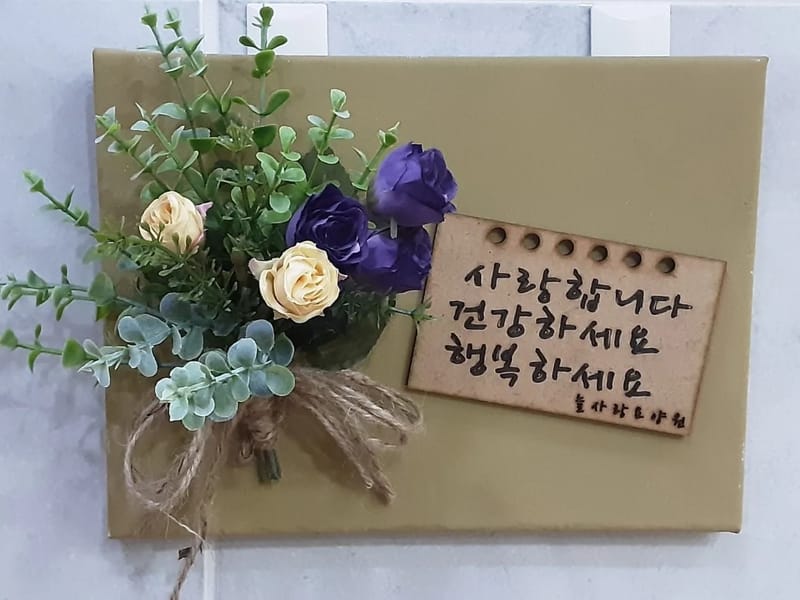 사랑합니다
건강하세요
행복하세요
늘사랑요양원